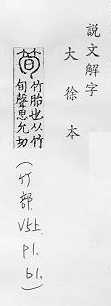 説文解字
大徐本
筍
竹胎也从竹
旬聲思允切
(竹部
V5上
p1.
b1.)